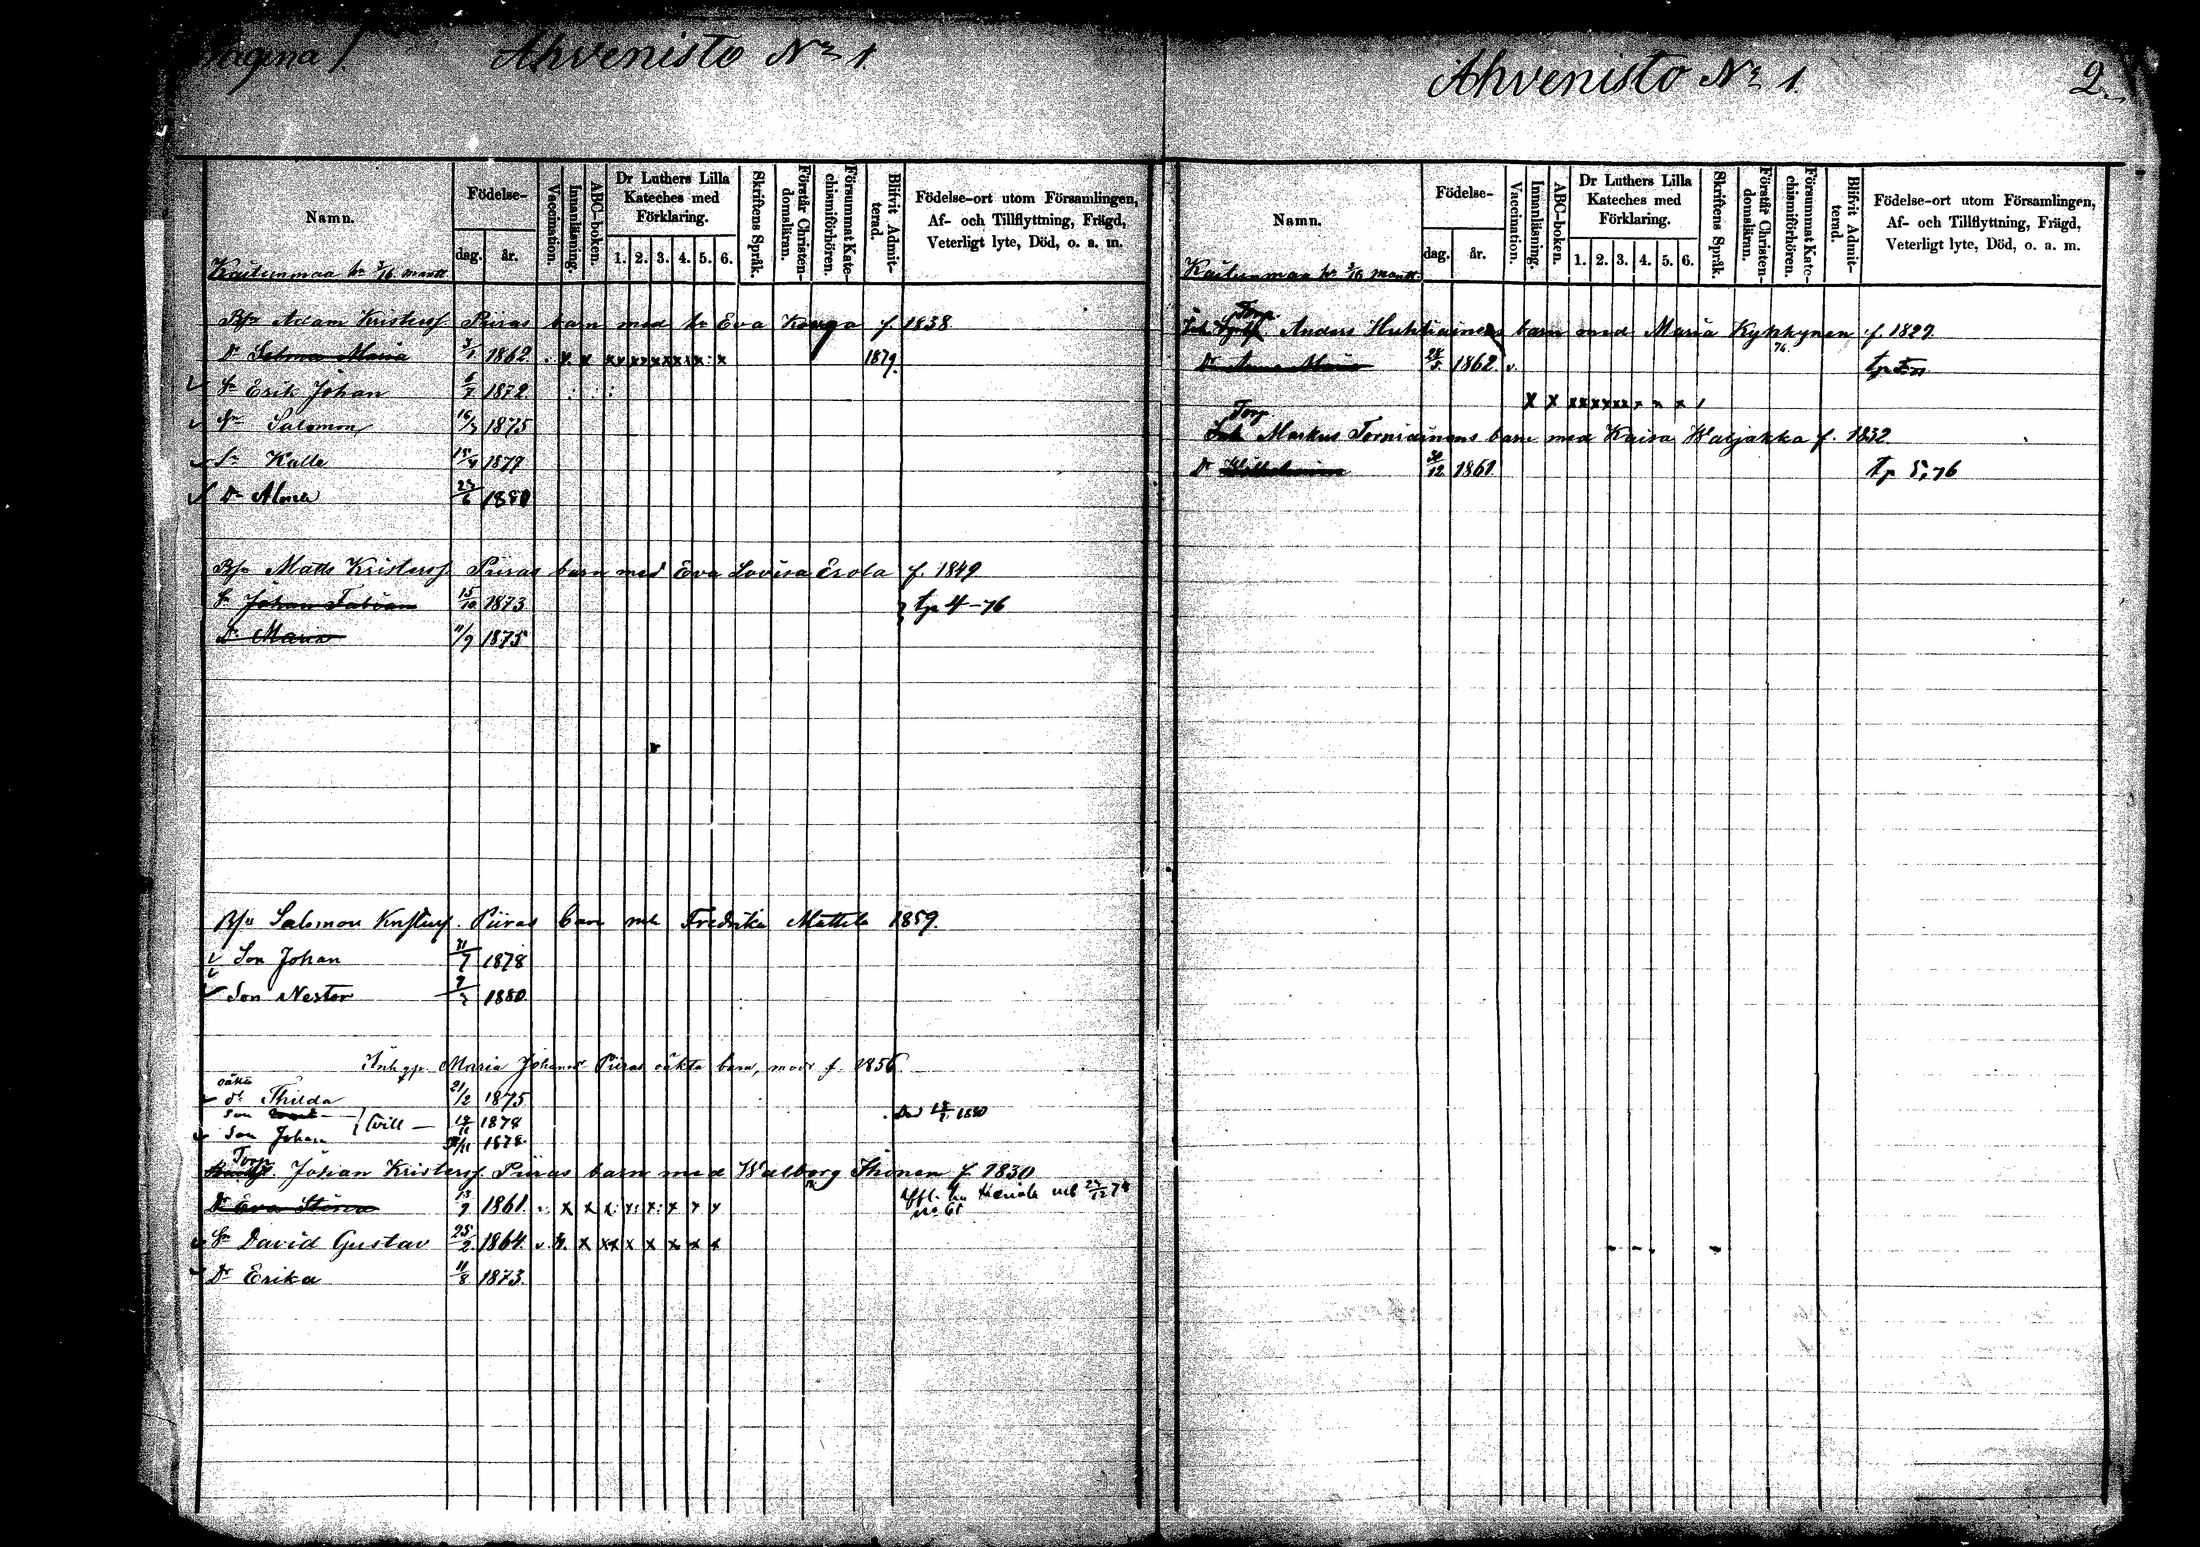 Pagina 1. Ahvenisto No 1.
Namn.
Födelse-
dag. år.
Vaccination.
Innanläsning.
ABC-boken.
Dr Luthers Lilla Kateches med Förklaring.
1. 2. 3. 4. 5. 6.
Skriftens Språk.
Förstår Christendomsläran.
Försummat Katechismiförhören.
Blifvit Admitterad.
Födelse-ort utom Församlingen,
Af- och Tillflyttning, Frägd,
Veterligt lyte, Död, o. a. m.
Kaitunmaa hr 3/16 mantt
Adam Kristersf Piiras barn med hr Eva Kouga f. 1838
Dr Selma Maria 3/1 1862 . x. x x x x x x x x x x x 1879.
Sn Erik Johan 6/7 1872
Sn Salomon 16/3 1875
Sn Kalle 15/4 1879
Dr Alma 23/6 1880
Matts Kristersf Piiras barn med Eva Lovisa Erola f. 1849
Sn Johan Fabian 15/10 1873 } tp 4-76
Dr Maria 11/9 1875
Salomon Piiras barn Fredrika Mattila 1859.
Son Johan 21/7 1878
Son Nestor 1880
Maria Piiras oäkta barn, mor f. 1856.
oäkta
dr Thilda 21/2 1875
Son } tvill — 1878 1880
Son Johan 1878
Torp
Johan Kristersf. Piiras barn med Walborg Ihonen f. 1830
Dr Eva Stina 13/9 1861 x x x x x x x x
Sn David Gustav 25/2 1864 v. x x x x x x x
Dr Erika 11/8 1873
Ahvenisto No 1. 2.
Namn.
Födelse-
dag. år.
Vaccination.
Innanläsning.
ABC-boken.
Dr Luthers Lilla Kateches med Förklaring.
1. 2. 3. 4. 5. 6.
Skriftens Språk.
Förstår Christendomsläran.
Försummat Katechismiförhören.
Blifvit Admitterad.
Födelse-ort utom Församlingen,
Af- och Tillflyttning, Frägd,
Veterligt lyte, Död, o. a. m.
Kaitunmaa hr 3/16 mantt.
Torp
Anders Huhtiainens barn med Maria Kykkynen f. 1827.
Dr Anna Maria 28/5 1862 v.
x x x x x x x x x x
Torp
Markus Torniainens barn med Kaisa Waljakka f. 1832.
Dr Wilhelmina 30/12 1861 tp 5,76